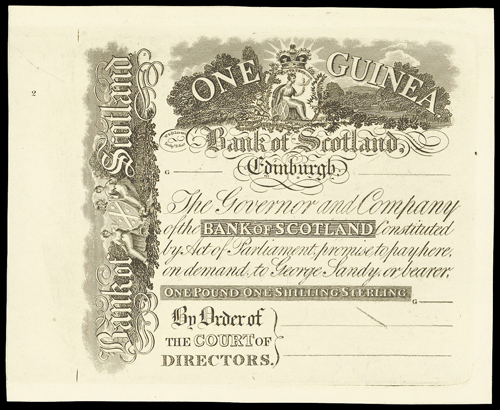 2
Bank of Scotland
ONE GUINEA
Bank of Scotland,
Edinburgh,
G
The Governor and Company
of the BANK OF SCOTLAND Constituted
by Act of Parliament, promise to pay here,
on demand, to George Sandy, or bearer,
ONE POUND ONE SHILLING STERLING.
G
By Order of
THE COURT OF
DIRECTORS.